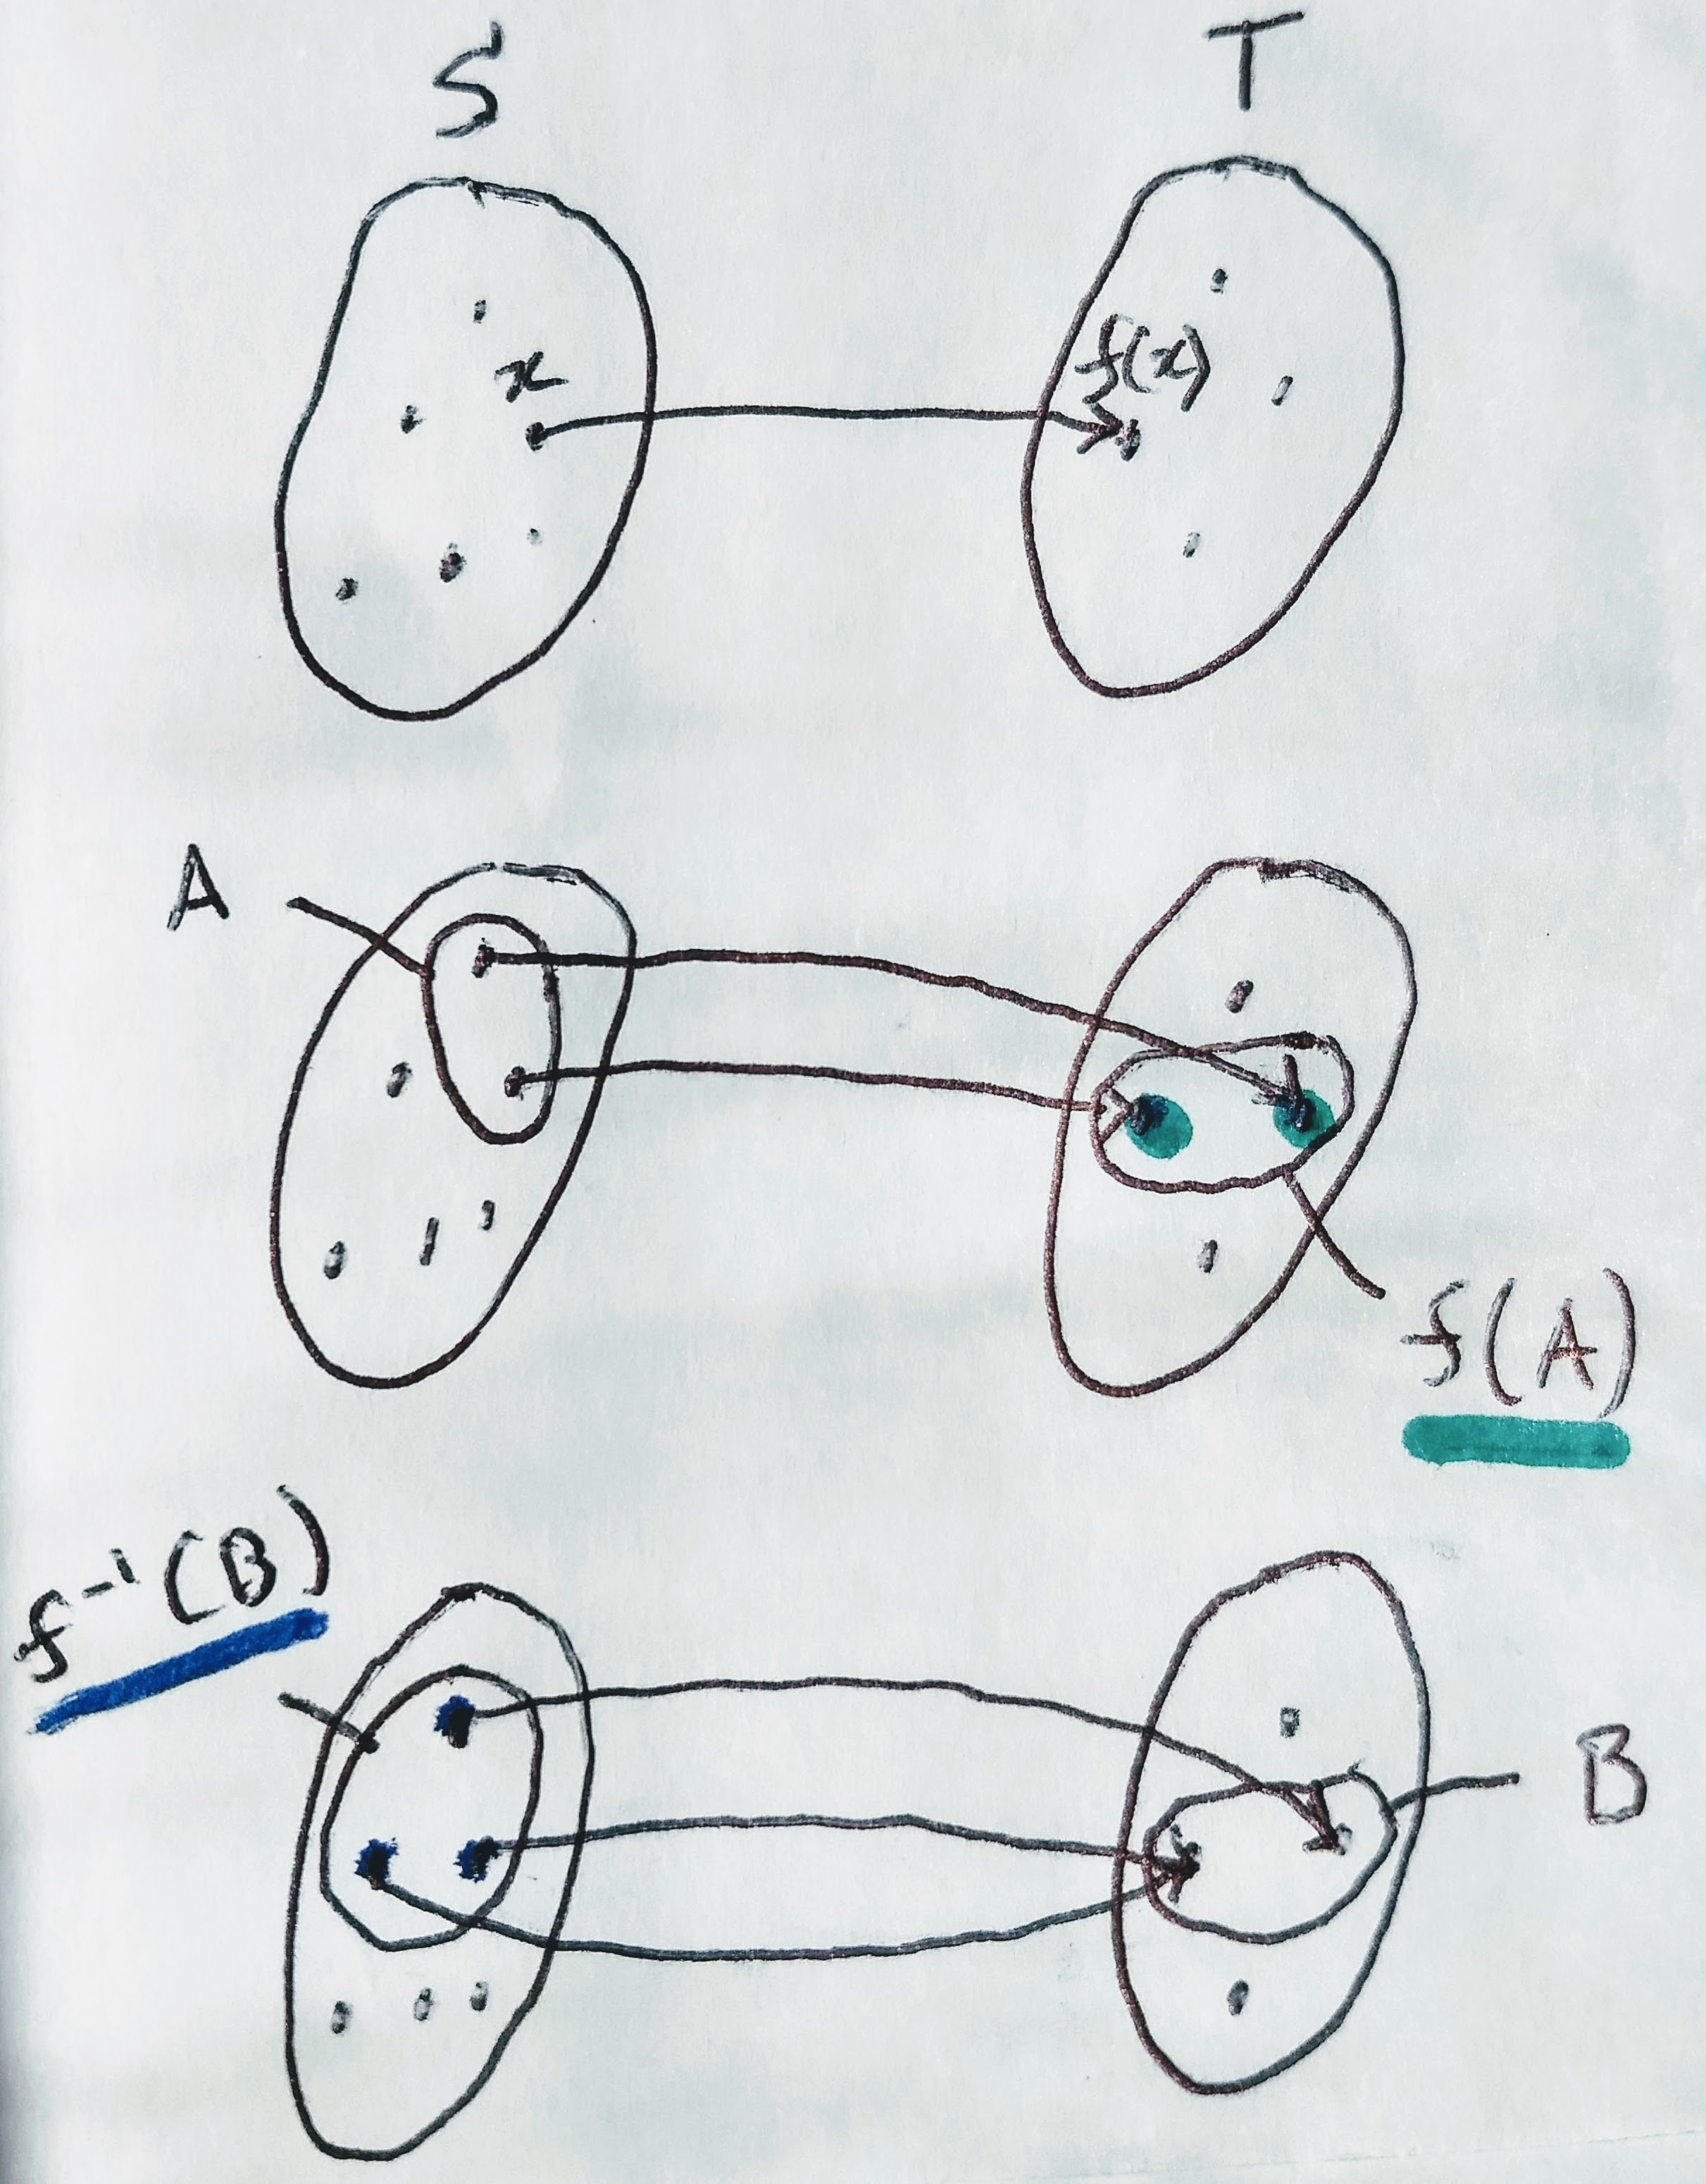 S T
x f(x)
A
f(A)
f⁻¹(B)
B